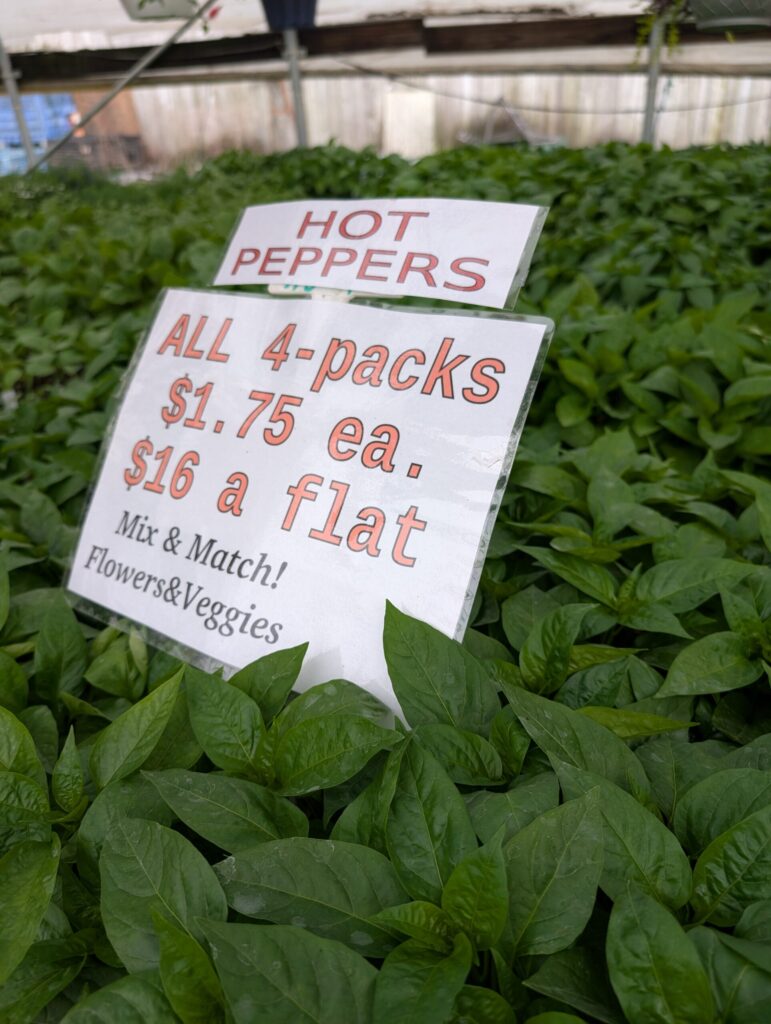 HOT
PEPPERS
ALL 4-packs
$1.75 ea.
$16 a flat
Mix & Match!
Flowers&Veggies